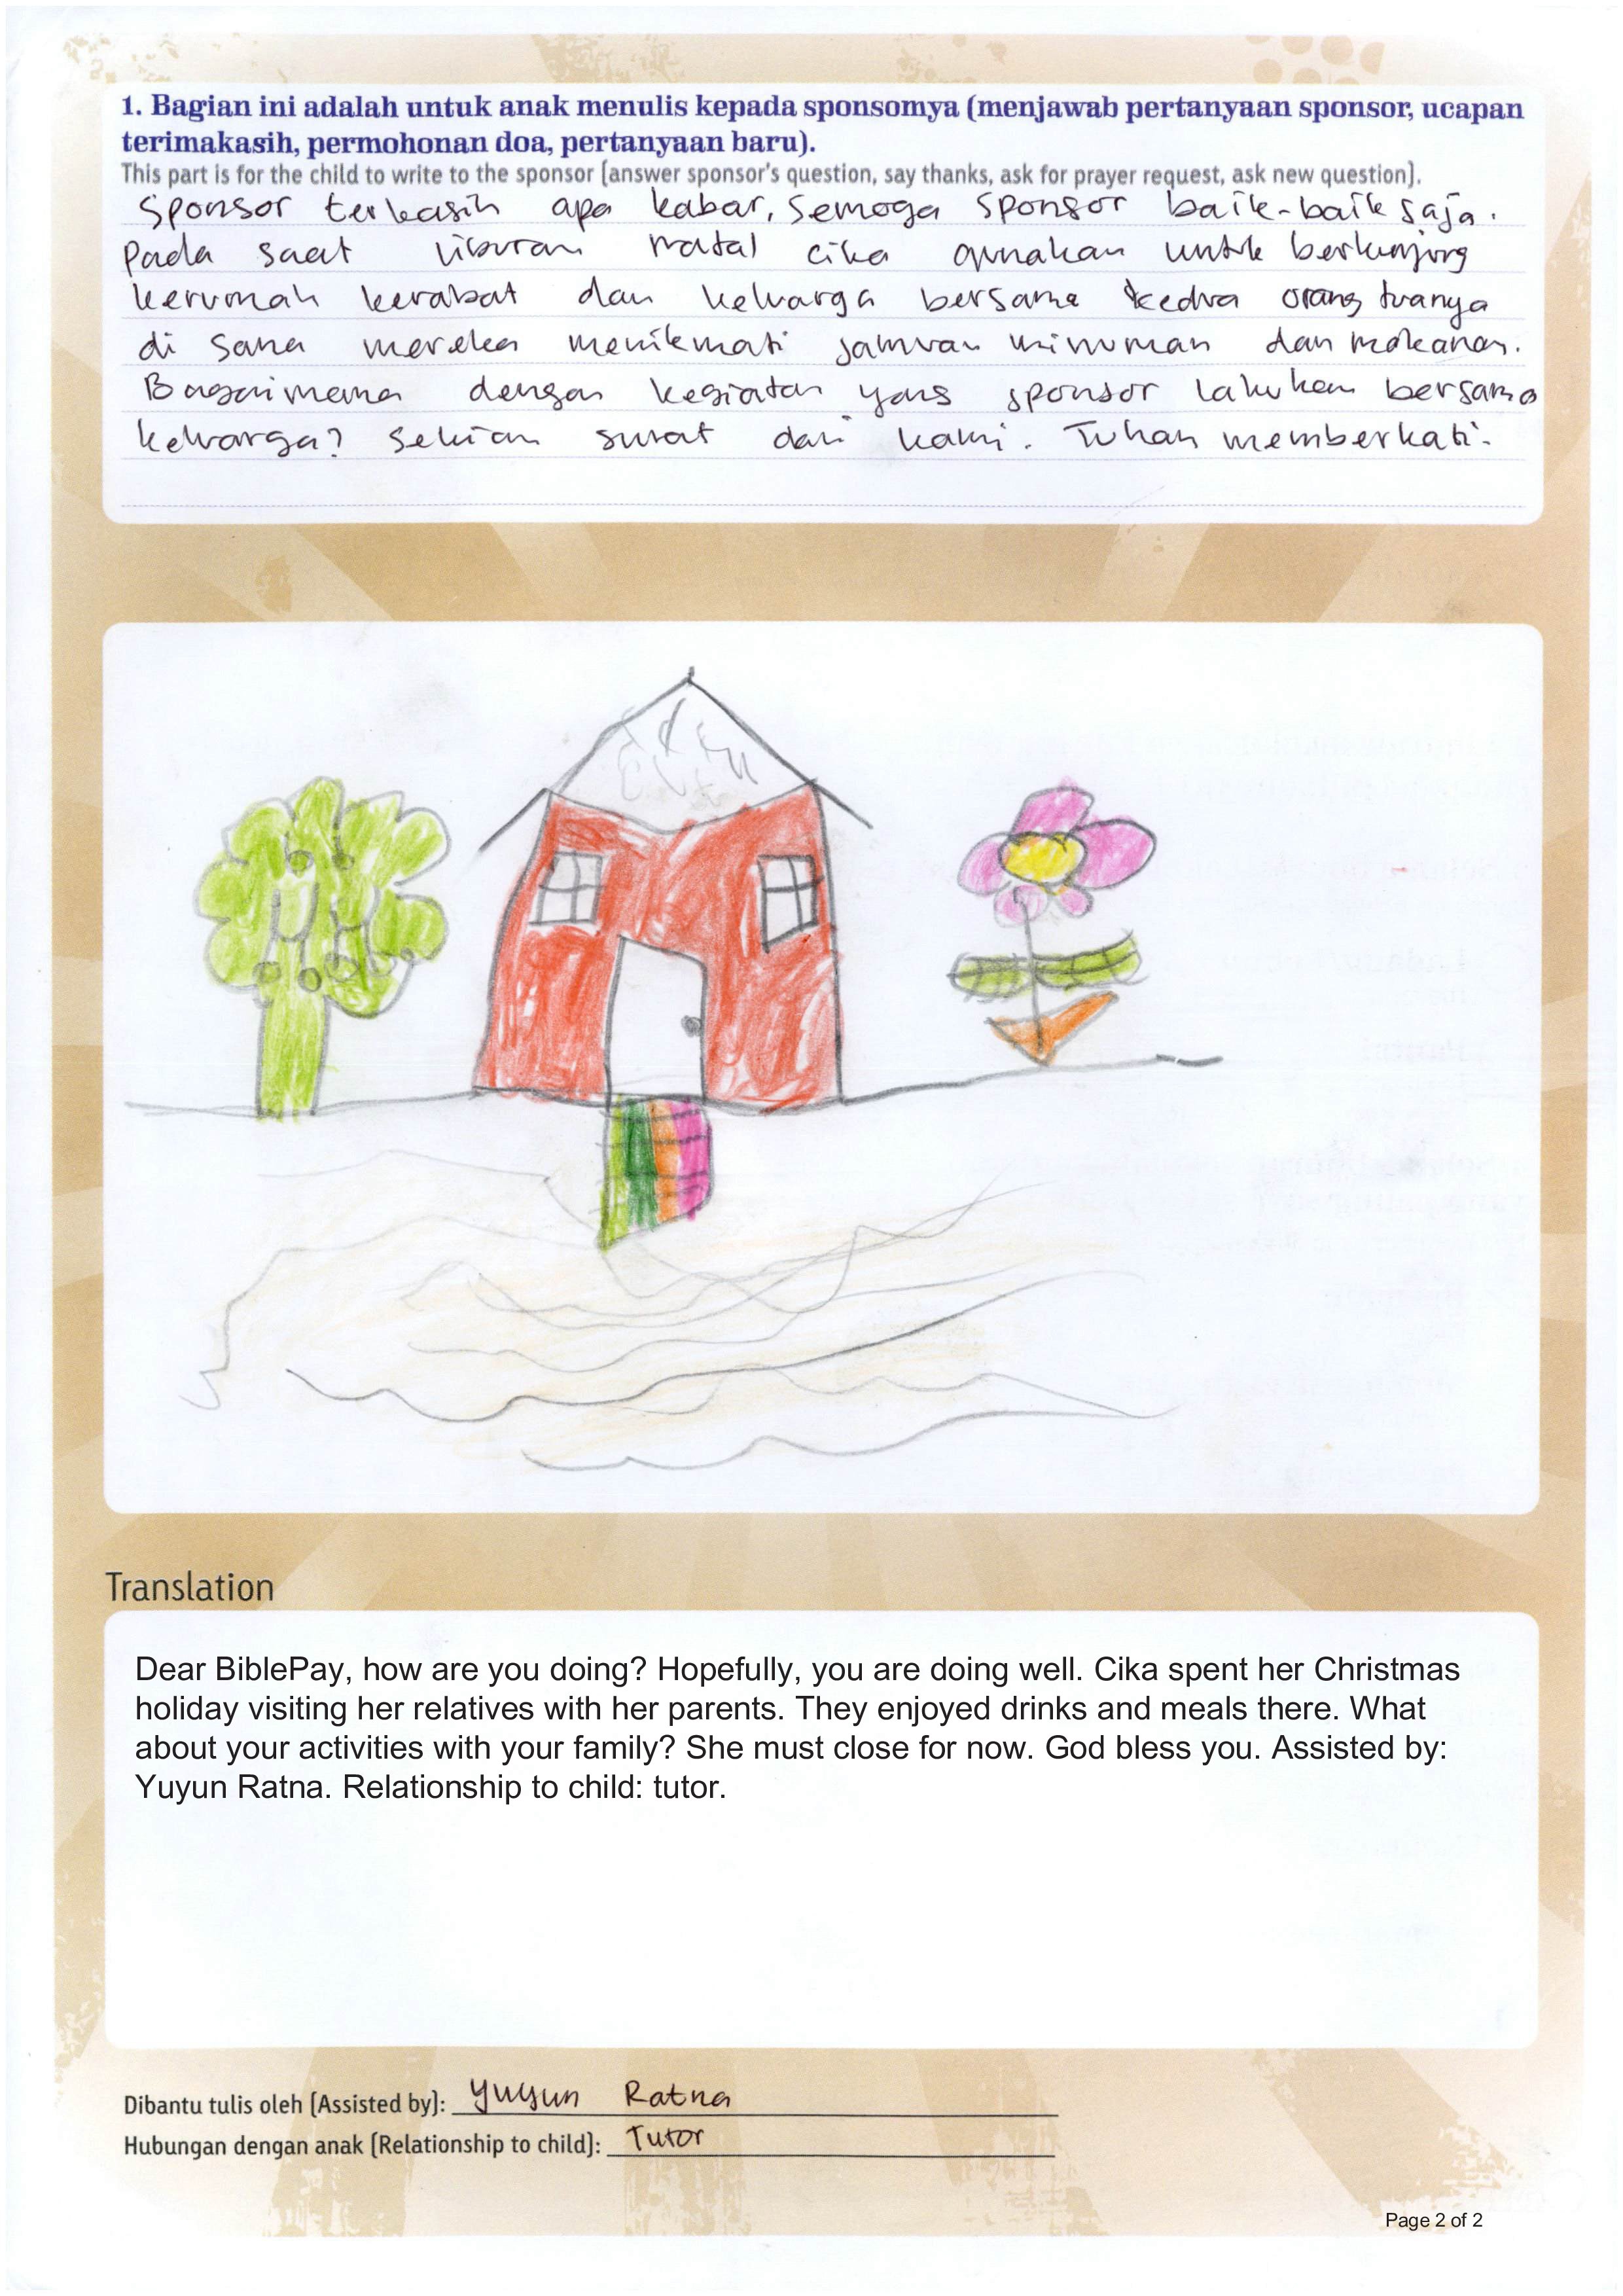 1. Bagian ini adalah untuk anak menulis kepada sponsomya (menjawab pertanyaan sponsor, ucapan
terimakasih, permohonan doa, pertanyaan baru).
This part is for the child to write to the sponsor (answer sponsor's question, say thanks, ask for prayer request, ask new question).
Sponsor terkasih apa kabar, semoga sponsor baik-baik saja.
Pada saat liburan Natal cika gunakan untuk berkunjung
kerumah kerabat dan keluarga bersama kedua orang tuanya
di sana mereka menikmati jamuan minuman dan makanan.
Bagaimana dengan kegiatan yang sponsor lakukan bersama
keluarga? Sekian surat dari kami. Tuhan memberkati.
Translation
Dear BiblePay, how are you doing? Hopefully, you are doing well. Cika spent her Christmas
holiday visiting her relatives with her parents. They enjoyed drinks and meals there. What
about your activities with your family? She must close for now. God bless you. Assisted by:
Yuyun Ratna. Relationship to child: tutor.
Dibantu tulis oleh (Assisted by): Yuyun Ratna
Hubungan dengan anak (Relationship to child): Tutor
Page 2 of 2